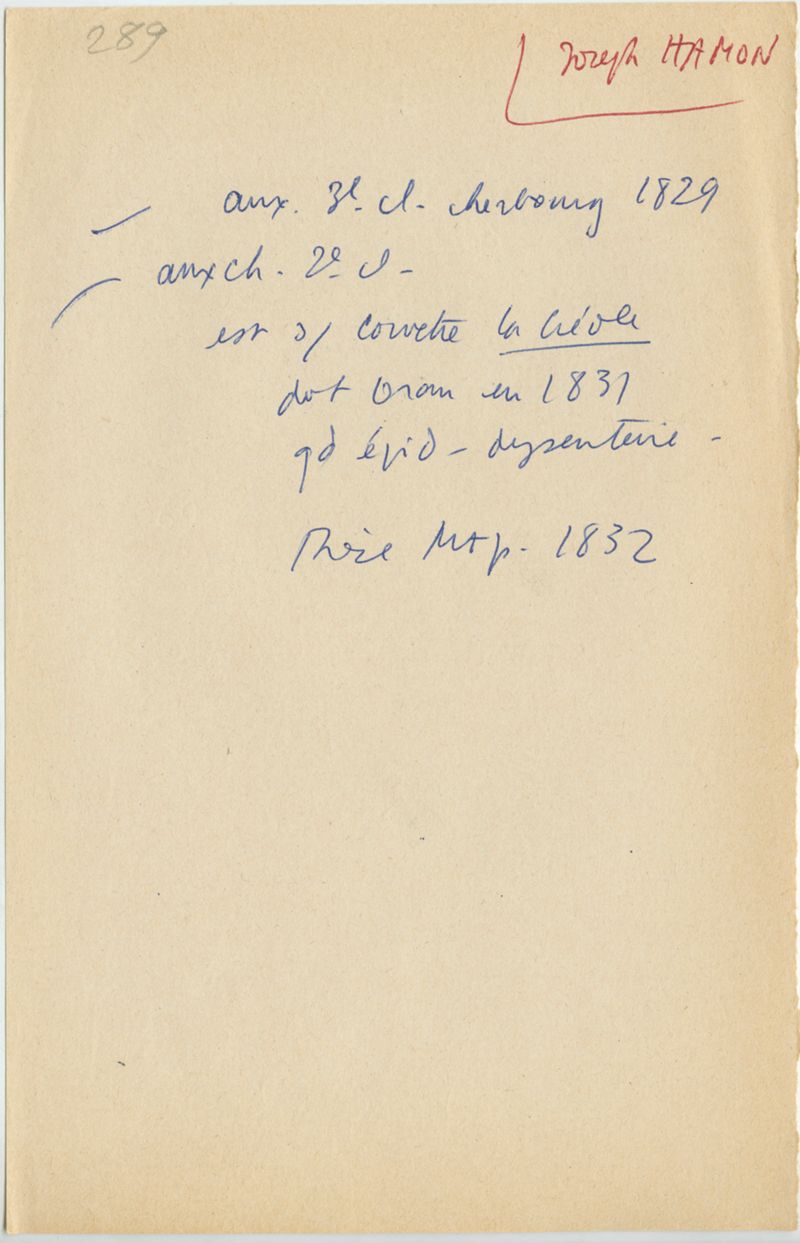 289
Joseph HAMON
aux. 3e cl. Cherbourg 1829
aux ch. 2e cl -
est s/ corvette la Créole
dvt Oran en 1831
qd épid - dysenterie -
Thèse Mtp. 1832